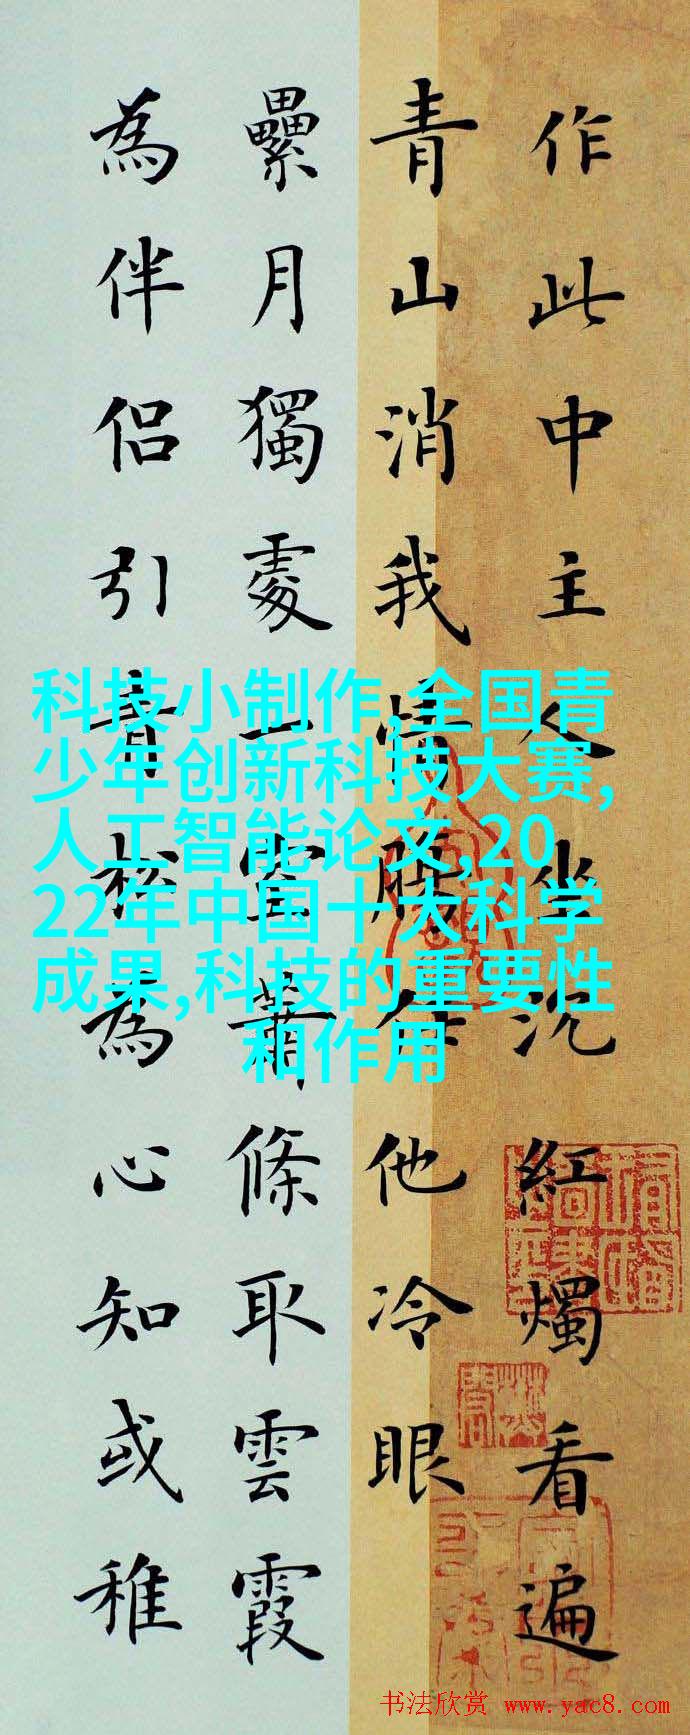 作此中主人坐沈紅燭看遍
青山消我情腸任他冷眼
纍月獨處一室蕭條取雲霞
為伴侶引青松為心知或稚
科技小制作,全国青
少年创新科技大赛,
人工智能论文,20
22年中国十大科学
成果,科技的重要性
和作用
书法欣赏 www.yac8.com